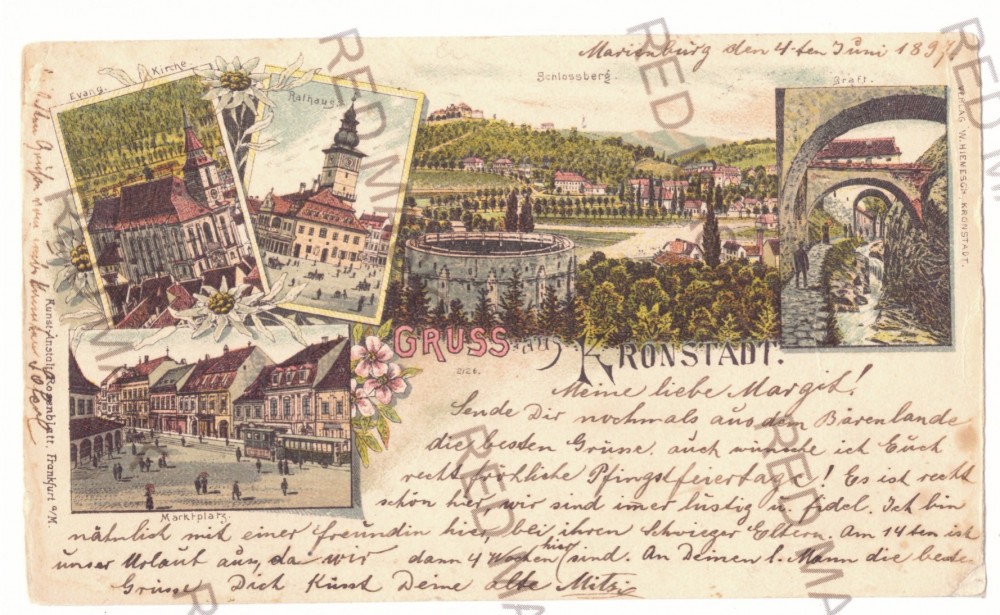 Marienburg den 4-ten Juni 189
Evang. Kirche
Rathaus
Schlossberg.
Graft.
VERLAG W. HIEMESCH, KRONSTADT.
Kunst-Anstalt Rosenblatt, Frankfurt a/M.
Marktplatz.
GRUSS aus KRONSTADT.
2126.
Meine liebe Margit!
Sende Dir nochmals aus dem Bärenlande
die besten Grüsse. auch wünsche ich Euch
recht fröhliche Pfingstfeiertage! Es ist recht
schön hier, wir sind imer lustig u. fidel. Ich bin
nähmlich mit einer Freundin hier, bei ihren Schwieger Eltern. Am 14ten ist
unser Urlaub aus, da wir dann 4 Wochen hier sind. An Deinen l. Mann die besten
Grüsse Dich Küsst Deine alte Mitzi
RED MAN
RED MAN
RED MAN
RED MAN
RED MAN
RED MAN